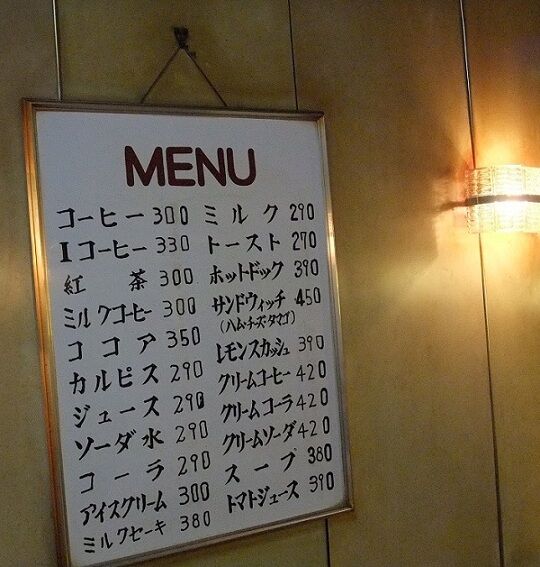 MENU
コーヒー 300
Iコーヒー 330
紅茶 300
ミルクコーヒー 300
ココア 350
カルピス 290
ジュース 290
ソーダ水 290
コーラ 290
アイスクリーム 300
ミルクセーキ 380
ミルク 290
トースト 270
ホットドック 390
サンドウィッチ 450
(ハム・チーズ・タマゴ)
レモンスカッシュ 390
クリームコーヒー 420
クリームコーラ 420
クリームソーダ 420
スープ 380
トマトジュース 390